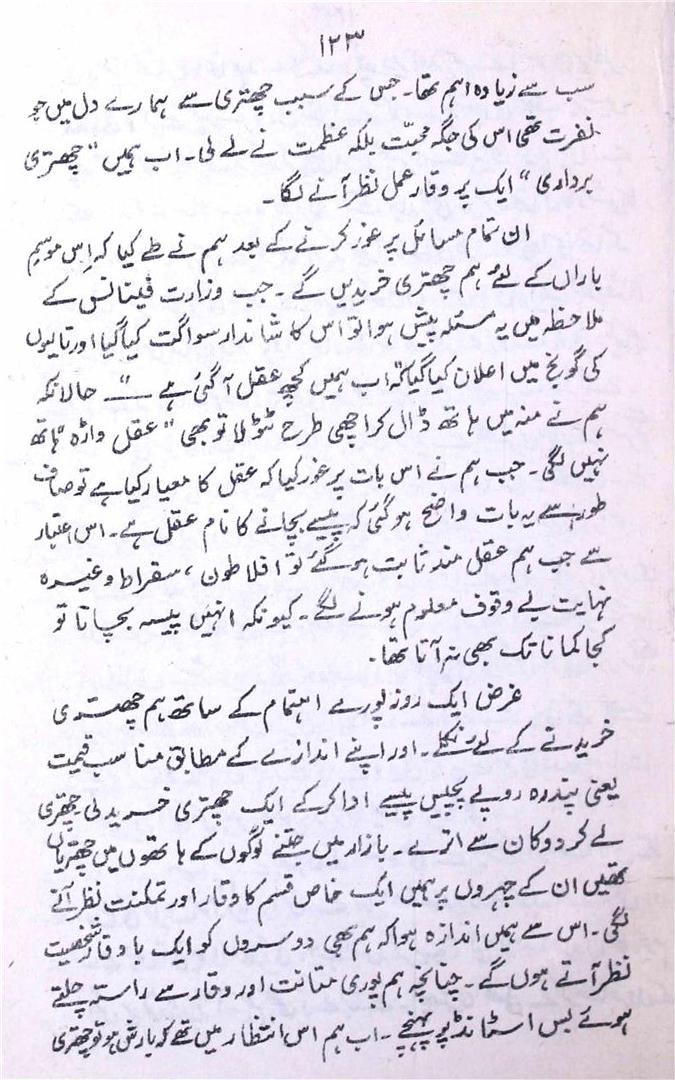 ۱۲۳
سب سے زیادہ اہم تھا۔ جس کے سبب چھتری سے ہمارے دل میں جو
نفرت تھی اس کی جگہ محبت بلکہ عظمت نے لے لی۔ اب ہمیں "چھتری
برداری" ایک پر وقار عمل نظر آنے لگا۔
ان تمام مسائل پر غور کرنے کے بعد ہم نے طے کیا کہ اِس موسمِ
باراں کے لئے ہم چھتری خریدیں گے۔ جب وزارت فینانس کے
ملاحظہ میں یہ مسئلہ پیش ہوا تو اس کا شاندار سواگت کیا گیا اور تالیوں
کی گونج میں اعلان کیا گیا کہ "اب ہمیں کچھ عقل آ گئی ہے" ــــ حالانکہ
ہم نے منہ میں ہاتھ ڈال کر اچھی طرح ٹٹولا تو بھی "عقل واڑہ" ہاتھ
نہیں لگی۔ جب ہم نے اس بات پر غور کیا کہ عقل کا معیار کیا ہے تو صاف
طور سے یہ بات واضح ہو گئی کہ پیسے بچانے کا نام عقل ہے۔ اس اعتبار
سے جب ہم عقل مند ثابت ہو گئے تو افلاطون، سقراط وغیرہ
نہایت بے وقوف معلوم ہونے لگے۔ کیونکہ انہیں پیسہ بچانا تو
کجا کمانا تک بھی نہ آتا تھا۔
غرض ایک روز پورے اہتمام کے ساتھ ہم چھتری
خریدنے کے لیے نکلے۔ اور اپنے اندازے کے مطابق مناسب قیمت
یعنی پندرہ روپے پچیس پیسے ادا کرکے ایک چھتری خرید لی چھتری
لے کر دوکان سے اترے۔ بازار میں جتنے لوگوں کے ہاتھوں میں چھتریاں
تھیں ان کے چہروں پر ہمیں ایک خاص قسم کا وقار اور تمکنت نظر آنے
لگی۔ اس سے ہمیں اندازہ ہوا کہ ہم بھی دوسروں کو ایک باوقار شخصیت
نظر آتے ہوں گے۔ چنانچہ ہم پوری متانت اور وقار سے راستہ چلتے
ہوئے بس اسٹانڈ پر پہنچے۔ اب ہم اس انتظار میں تھے کہ بارش ہو تو چھتری